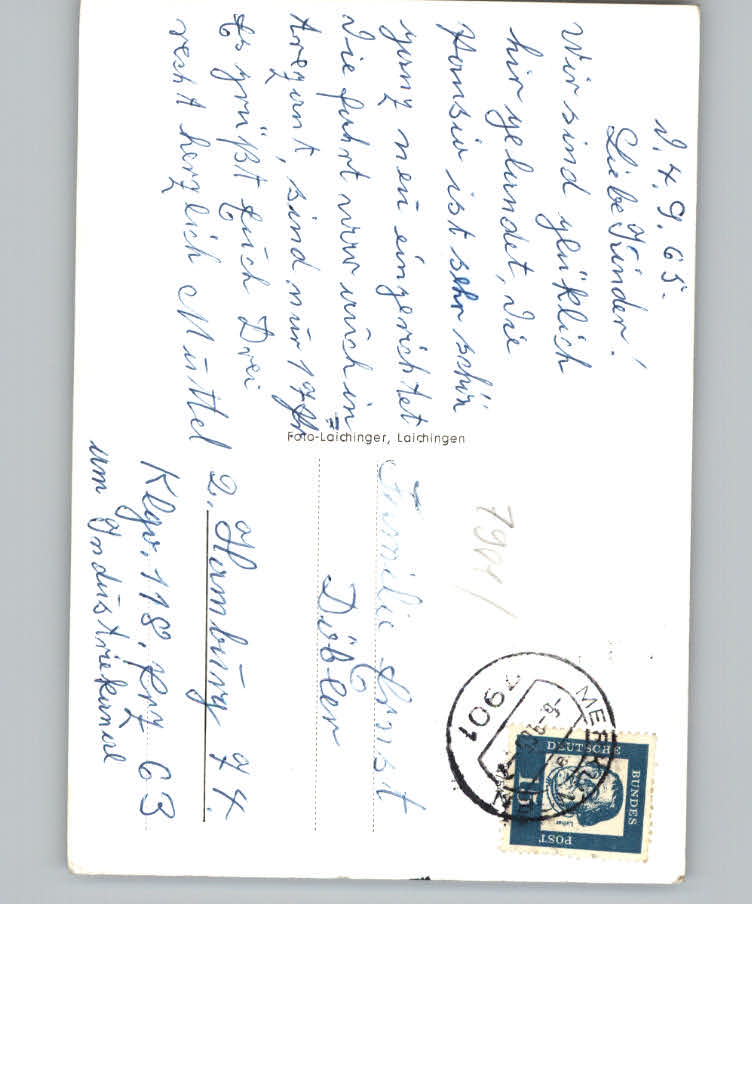 d. 4. 9. 65.
Liebe Kinder!
Wir sind glüklich
hir gelandet, die
Pansio ist sehr schön
ganz neu eingerichtet
die fahrt war auch in
sind nur 17
Es grüßt Euch Drei
recht herzlich Muttel
Foto-Laichinger, Laichingen
Familie Ernst
Döbler
2. Hamburg 74.
Klgv. 118. Prz 63
am Industriekanal
7901
7901
DEUTSCHE
BUNDES
POST
15
Luther